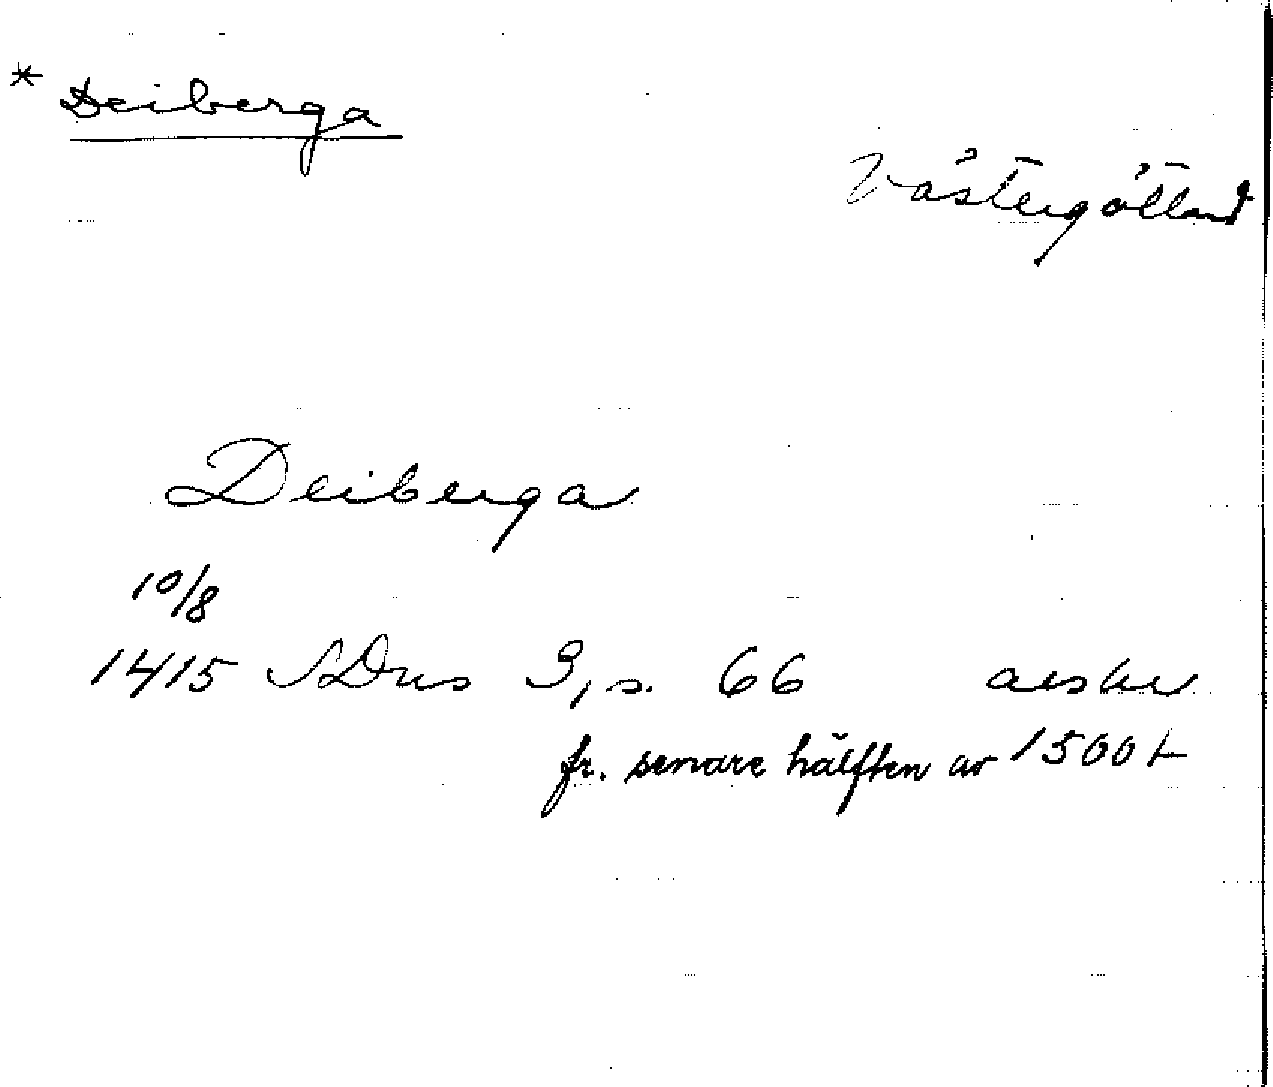 * Deiberga
Västergötland
Deiberga
10/8
1415 SDns 3, s. 66 avskr
fr. senare hälften av 1500t